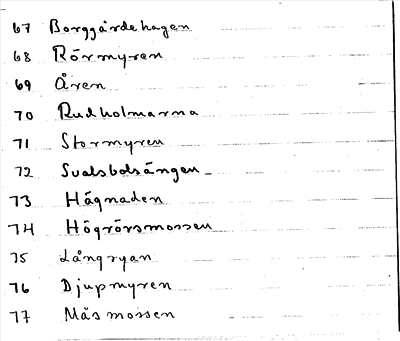 67 Borggärdehagen
68 Rörmyren
69 Åren
70 Rudholmarna
71 Stormyren
72 Svalsbolsängen
73 Hägnaden
74 Högrörsmossen
75 Långryan
76 Djupmyren
77 Måsmossen